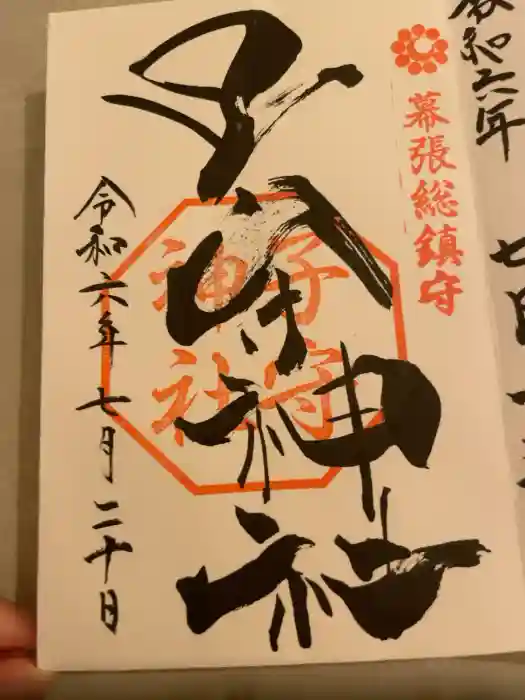 令和六年
七月
幕張総鎮守
子守神社
子守
神社
令和六年七月二十日